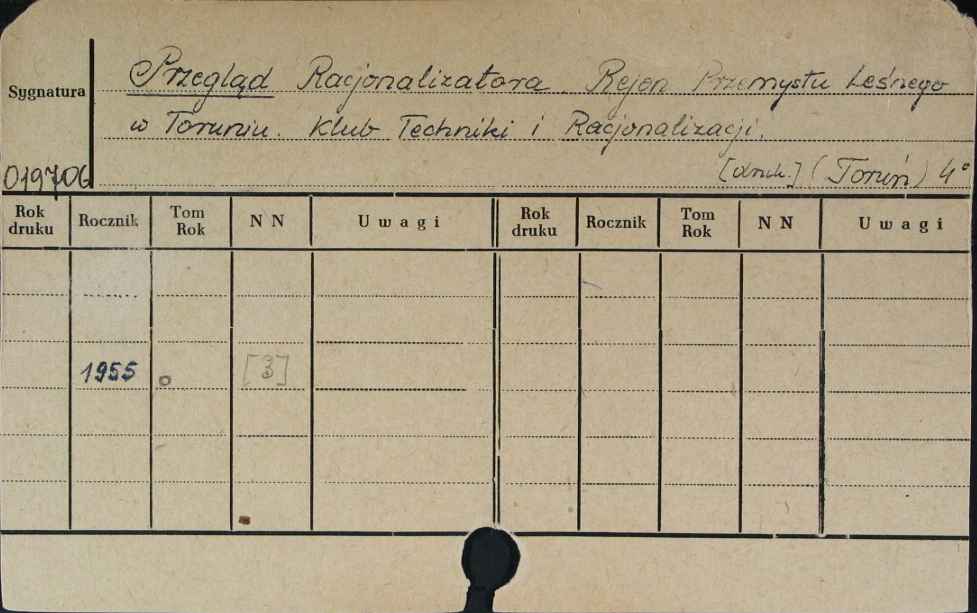 Sygnatura
Przegląd Racjonalizatora. Rejon Przemysłu Leśnego
w Toruniu. Klub Techniki i Racjonalizacji.
019706
[druk.] (Toruń) 4°
Rok druku Rocznik Tom Rok N N Uwagi Rok druku Rocznik Tom Rok N N Uwagi
1955 o [3]